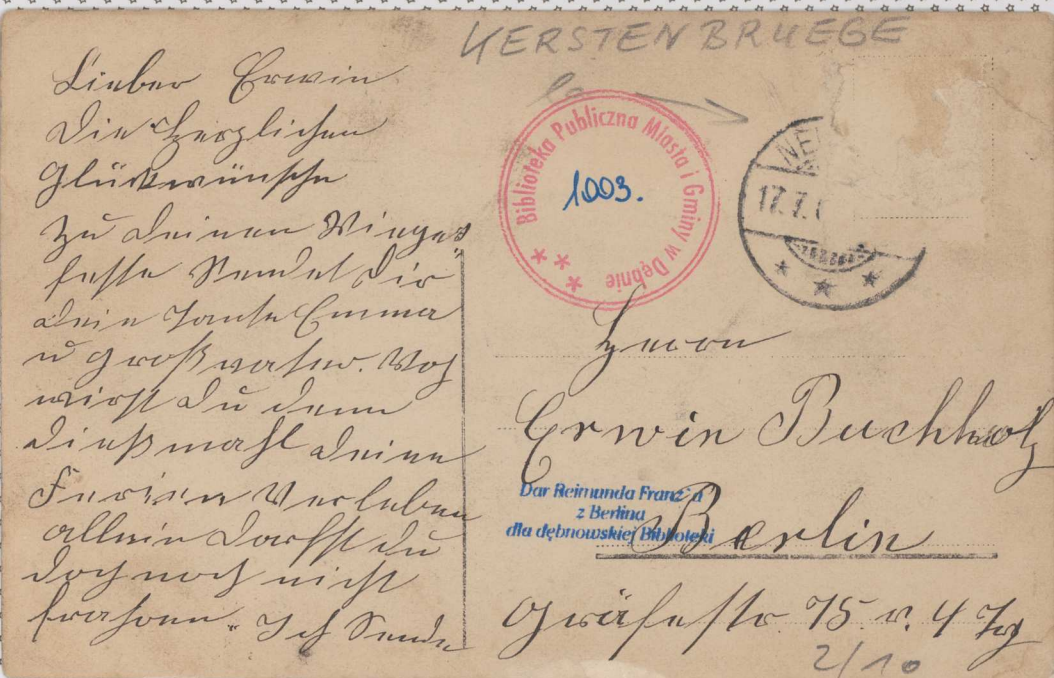 KERSTENBRUEGE
Lieber Erwin
die herzlichen
Glückwünsche
zu deinen Wiege„
feste Sendet dir
dein Tante Emma
u Großvater. Wo
wirst du denn
dießmahl deine
Ferien Verleben
allein darfst du
doch noch nicht
frahren. Ich Sende
Biblioteka Publiczna Miasta i Gminy w Dębnie
1003.
NEU
17.7.1
Herrn
Erwin Buchholz
Dar Reimunda Franz'a
z Berlina
dla dębnowskiej Biblioteki
Berlin
Gräfestr. 75 v. 4 Trg
2/10